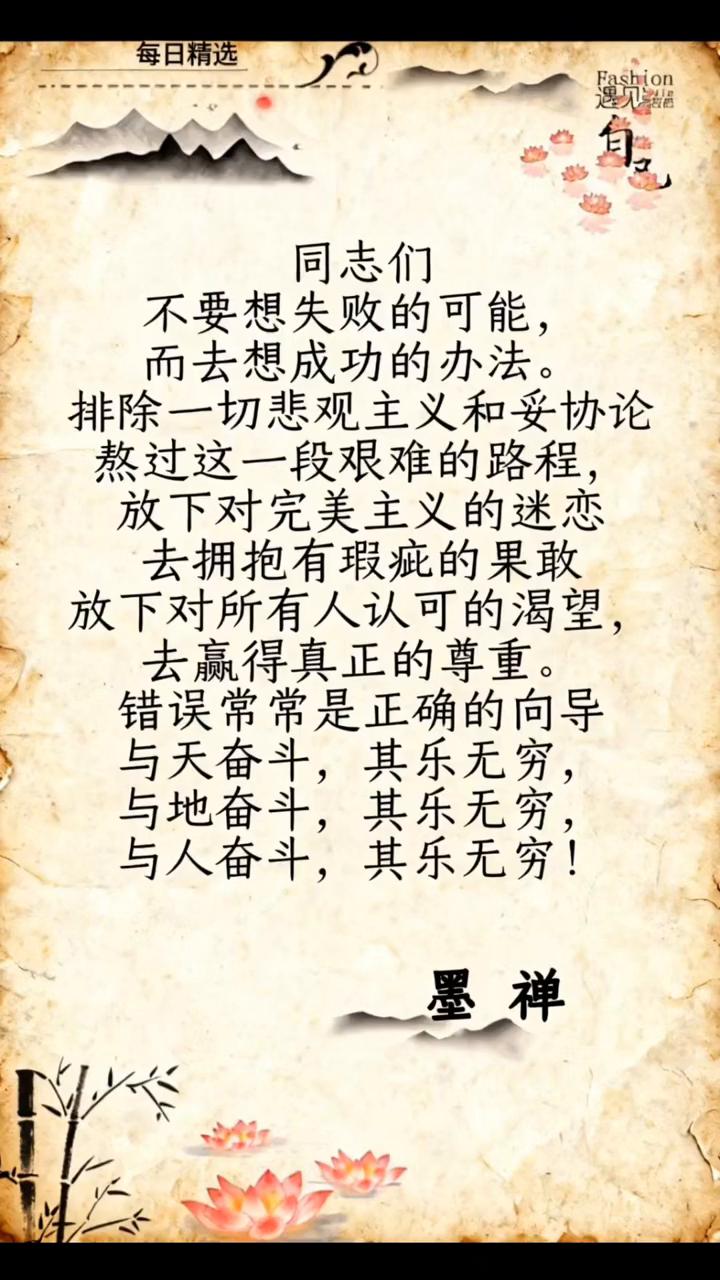 每日精选
Fashion
遇见
自己
同志们
不要想失败的可能，
而去想成功的办法。
排除一切悲观主义和妥协论
熬过这一段艰难的路程，
放下对完美主义的迷恋
去拥抱有瑕疵的果敢
放下对所有人认可的渴望，
去赢得真正的尊重。
错误常常是正确的向导
与天奋斗，其乐无穷，
与地奋斗，其乐无穷，
与人奋斗，其乐无穷！
墨 禅